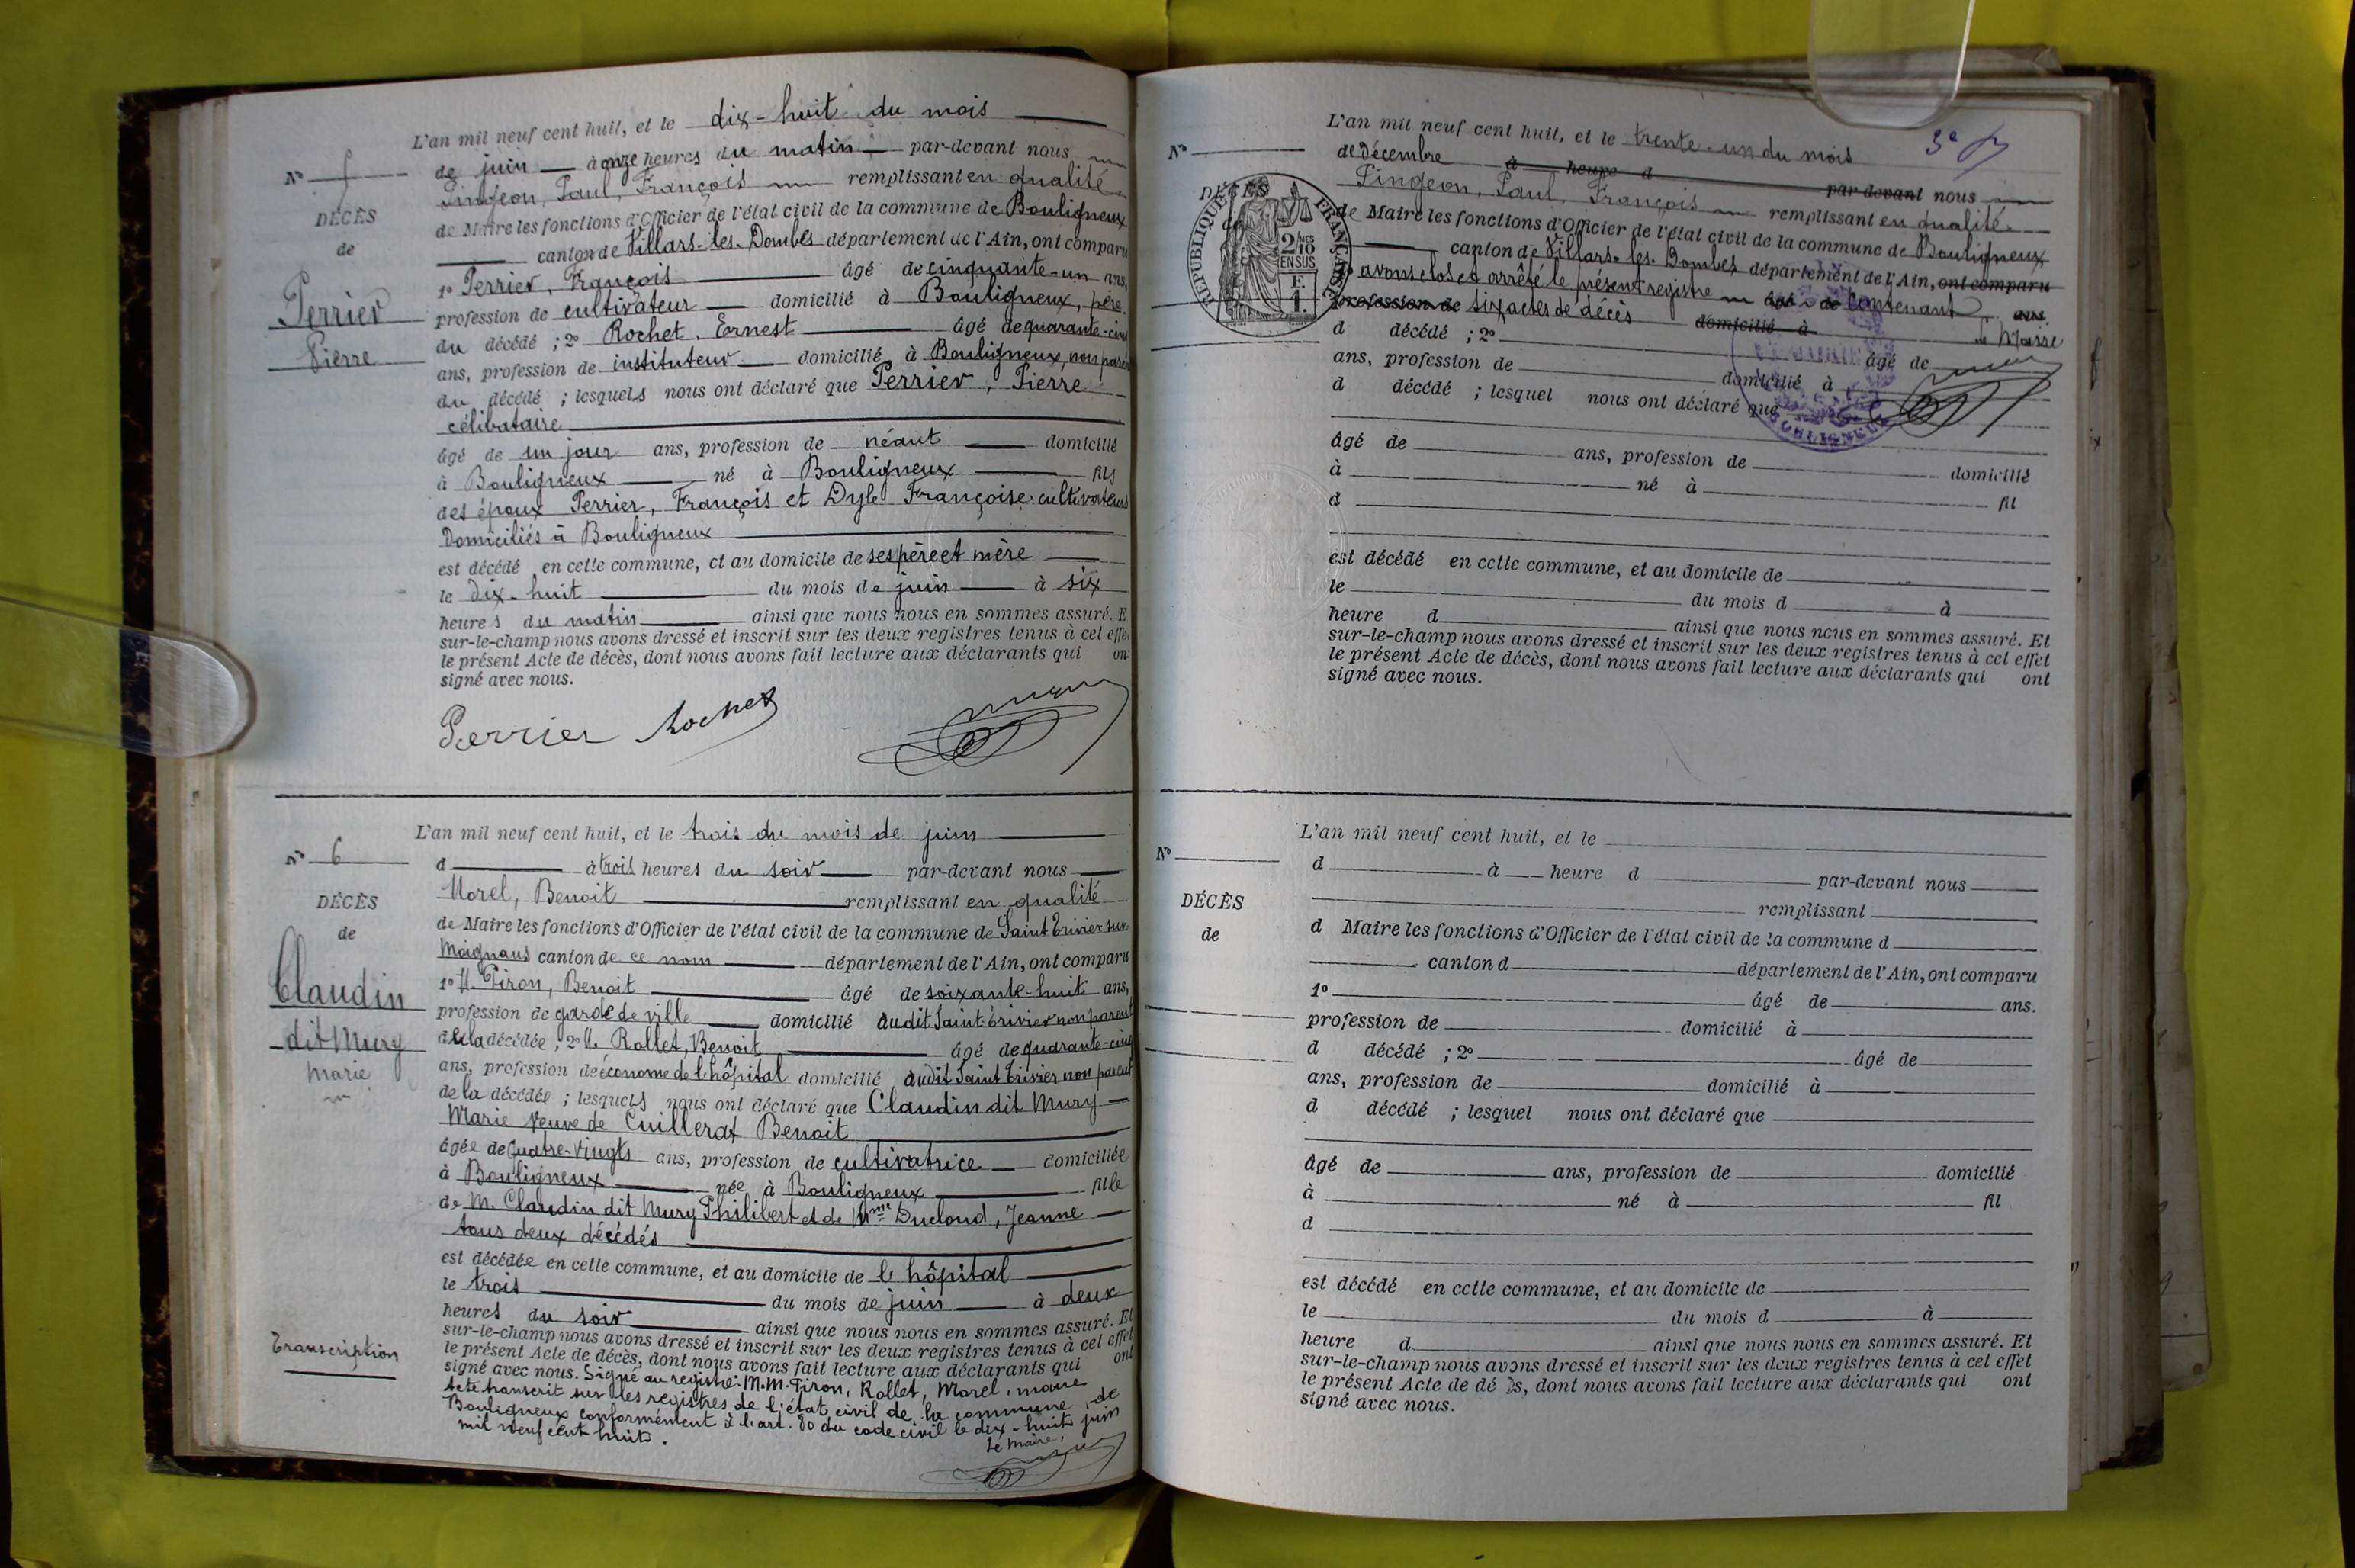 L'an mil neuf cent huit, et le dix-huit du mois
de juin à onze heures du matin par-devant nous
Pingeon, Paul, François remplissant en qualité
de Maire les fonctions d'Officier de l'état civil de la commune de Bouligneux
canton de Villars-les-Dombes département de l'Ain, ont comparu
1° Perrier, François âgé de cinquante-un ans,
profession de cultivateur domicilié à Bouligneux, père
du décédé ; 2° Rochet, Ernest âgé de quarante-cinq
ans, profession de instituteur domicilié à Bouligneux, non parent
du décédé ; lesquels nous ont déclaré que Perrier, Pierre
célibataire
âgé de un jour ans, profession de néant domicilié
à Bouligneux né à Bouligneux fils
des époux Perrier, François et Françoise cultivateurs
Domiciliés à Bouligneux
est décédé en cette commune, et au domicile de ses père et mère
le dix-huit du mois de juin à six
heures du matin ainsi que nous nous en sommes assuré. E
sur-le-champ nous avons dressé et inscrit sur les deux registres tenus à cet effe
le présent Acte de décès, dont nous avons fait lecture aux déclarants qui on
signé avec nous.
Perrier Rochet
N°
DÉCÈS
de
Perrier
Pierre
L'an mil neuf cent huit, et le trois du mois de juin
d à trois heures du soir par-devant nous
Morel, Benoit remplissant en qualité
de Maire les fonctions d'Officier de l'état civil de la commune de Saint Trivier sur
Moignans canton de ce nom département de l'Ain, ont comparu
1° M. Piron, Benoit âgé de soixante-huit ans,
profession de garde de ville domicilié audit Saint-Trivier non parent
de la décédée ; 2° M. Rollet, Benoit âgé de quarante-cinq
ans, profession de économe de l'hôpital domicilié audit Saint Trivier non parent
de la décédée ; lesquels nous ont déclaré que Claudin dit Mury
Marie Veuve de Cuillerat Benoit
âgée de quatre-vingts ans, profession de cultivatrice domiciliée
à Bouligneux née à Bouligneux fille
de M. Claudin dit Mury Philibert et de Mme Ducloud, Jeanne
tous deux décédés
est décédée en cette commune, et au domicile de l'hôpital
le trois du mois de juin à deux
heures du soir ainsi que nous nous en sommes assuré. Et
sur-le-champ nous avons dressé et inscrit sur les deux registres tenus à cet effet
le présent Acte de décès, dont nous avons fait lecture aux déclarants qui ont
signé avec nous. Signé au registre : M.M. Piron, Rollet, Morel, maire
Acte transcrit sur les registres de l'état civil de la commune de
Bouligneux conformément à l'art. 80 du code civil le dix-huit juin
mil neuf cent huit.
Le Maire,
N° 6
DÉCÈS
de
Claudin
dit Mury
Marie
Transcription
L'an mil neuf cent huit, et le trente-un du mois
de Décembre à heure d par-devant nous
Pingeon, Paul, François remplissant en qualité
de Maire les fonctions d'Officier de l'état civil de la commune de Bouligneux
canton de Villars-les-Dombes département de l'Ain, ont comparu
1° avons clos et arrêté le présent registre âgé de contenant ans.
profession de six actes de décès domicilié à
d décédé ; 2° Le Maire
ans, profession de âgé de
domicilié à
d décédé ; lesquel nous ont déclaré que
âgé de ans, profession de domicilié
à né à fil
d
est décédé en cette commune, et au domicile de
le du mois d à
heure d ainsi que nous nous en sommes assuré. Et
sur-le-champ nous avons dressé et inscrit sur les deux registres tenus à cet effet
le présent Acte de décès, dont nous avons fait lecture aux déclarants qui ont
signé avec nous.
N°
DÉCÈS
RÉPUBLIQUE FRANÇAISE
2/10
EN SUS
L'an mil neuf cent huit, et le
d à heure d par-devant nous
remplissant
d Maire les fonctions d'Officier de l'état civil de la commune d
canton d département de l'Ain, ont comparu
1° âgé de ans.
profession de domicilié à
d décédé ; 2° âgé de
ans, profession de domicilié à
d décédé ; lesquel nous ont déclaré que
âgé de ans, profession de domicilié
à né à fil
d
est décédé en cette commune, et au domicile de
le du mois d à
heure d ainsi que nous nous en sommes assuré. Et
sur-le-champ nous avons dressé et inscrit sur les deux registres tenus à cet effet
le présent Acte de dé ès, dont nous avons fait lecture aux déclarants qui ont
signé avec nous.
N°
DÉCÈS
de